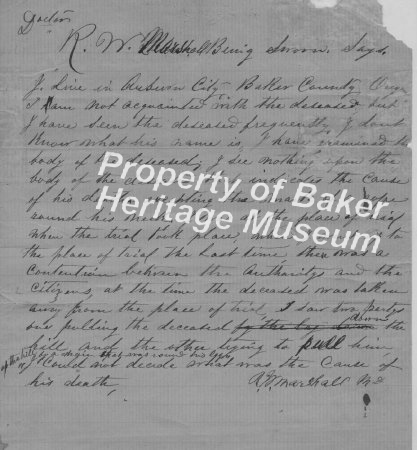 Doctor
R. W. Marshall Being Sworn. Says,
I. Live in Auburn City Baker County Ore
I am not acquainted with the deseased but
I have seen the deseased frequently, I dont
Know what his name is, I have examined the
body of the deseased, I see nothing upon the
body of the indicates the Cause
of his
round his the place of trial
when the trial took place, when to
the place of trial the last time, there was a
Contention between the Authoritys and the
Citizens, at the time the deceased was taken
away from the place of trial, I saw two partys
one pulling the deceased down the
hill, and the other trying to pull him
up the hill, by a rope that was round his
I Could not decide what was the Cause of
his death,
R W Marshall MD
Property of Baker
Heritage Museum